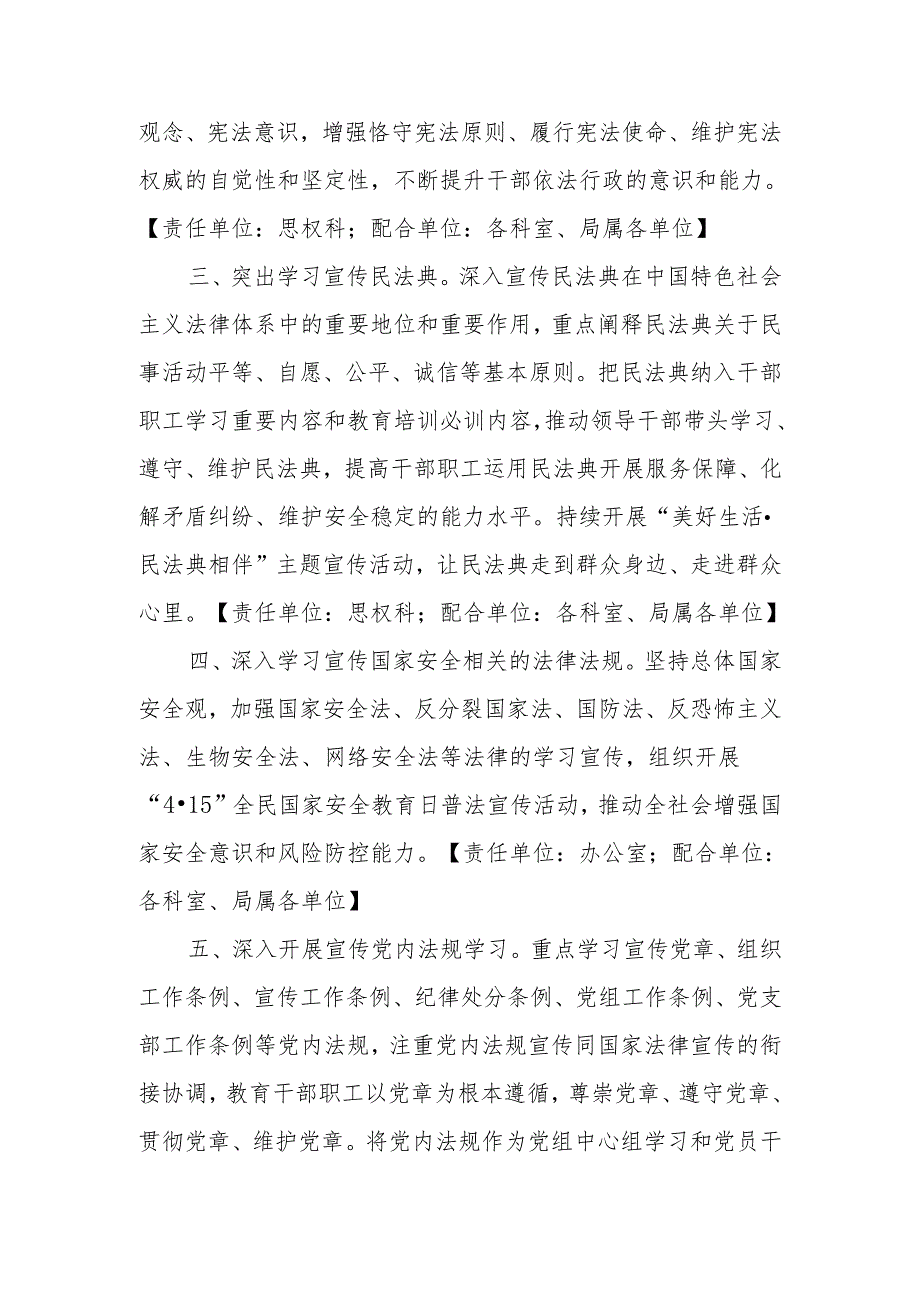 观念、宪法意识，增强恪守宪法原则、履行宪法使命、维护宪法
权威的自觉性和坚定性，不断提升干部依法行政的意识和能力。
【责任单位：思权科；配合单位：各科室、局属各单位】
三、突出学习宣传民法典。深入宣传民法典在中国特色社会
主义法律体系中的重要地位和重要作用，重点阐释民法典关于民
事活动平等、自愿、公平、诚信等基本原则。把民法典纳入干部
职工学习重要内容和教育培训必训内容，推动领导干部带头学习、
遵守、维护民法典，提高干部职工运用民法典开展服务保障、化
解矛盾纠纷、维护安全稳定的能力水平。持续开展“美好生活•
民法典相伴”主题宣传活动，让民法典走到群众身边、走进群众
心里。【责任单位：思权科；配合单位：各科室、局属各单位】
四、深入学习宣传国家安全相关的法律法规。坚持总体国家
安全观，加强国家安全法、反分裂国家法、国防法、反恐怖主义
法、生物安全法、网络安全法等法律的学习宣传，组织开展
“4•15”全民国家安全教育日普法宣传活动，推动全社会增强国
家安全意识和风险防控能力。【责任单位：办公室；配合单位：
各科室、局属各单位】
五、深入开展宣传党内法规学习。重点学习宣传党章、组织
工作条例、宣传工作条例、纪律处分条例、党组工作条例、党支
部工作条例等党内法规，注重党内法规宣传同国家法律宣传的衔
接协调，教育干部职工以党章为根本遵循，尊崇党章、遵守党章、
贯彻党章、维护党章。将党内法规作为党组中心组学习和党员干